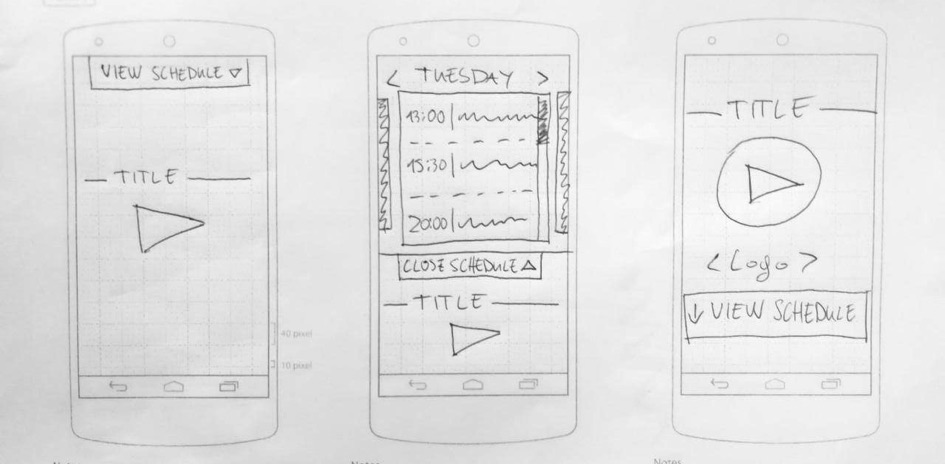 VIEW SCHEDULE
TITLE
40 pixel
10 pixel
< TUESDAY >
13:00
15:30
20:00
CLOSE SCHEDULE
TITLE
Notes
TITLE
< Logo >
↓ VIEW SCHEDULE
Notes